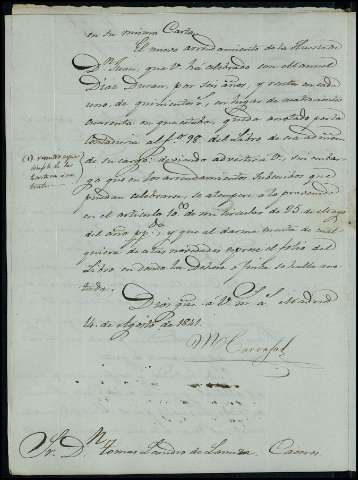 en su misma Carta
El nuevo arrendamiento de la Huerta de
Dn. Juan, que V. ha celebrado con Manuel
Diaz Duran, por seis años, y renta en cada
uno de quinientos, en lugar de cuatrocientos
cuarenta en que estaba, queda anotado por la
Contaduria al fo. 98 del Libro de la admon.
de su cargo: debiendo advertir a V. sin embar
go que en los arrendamientos subcesivos que
puedan celebrarse, se atempere a lo prevenido
en el articulo 10 de mi circular de 25 de Mayo
del año ppdo., y que al darme cuenta de cual
quiera de estas novedades esprese el folio del
Libro en donde la Dehesa o finca se halla ano
tada.
Dios gue. a V. ms. as. Madrid
14 de Agosto de 1841.
M. Carvajal
Sr. Dn. Tomas Leandro de